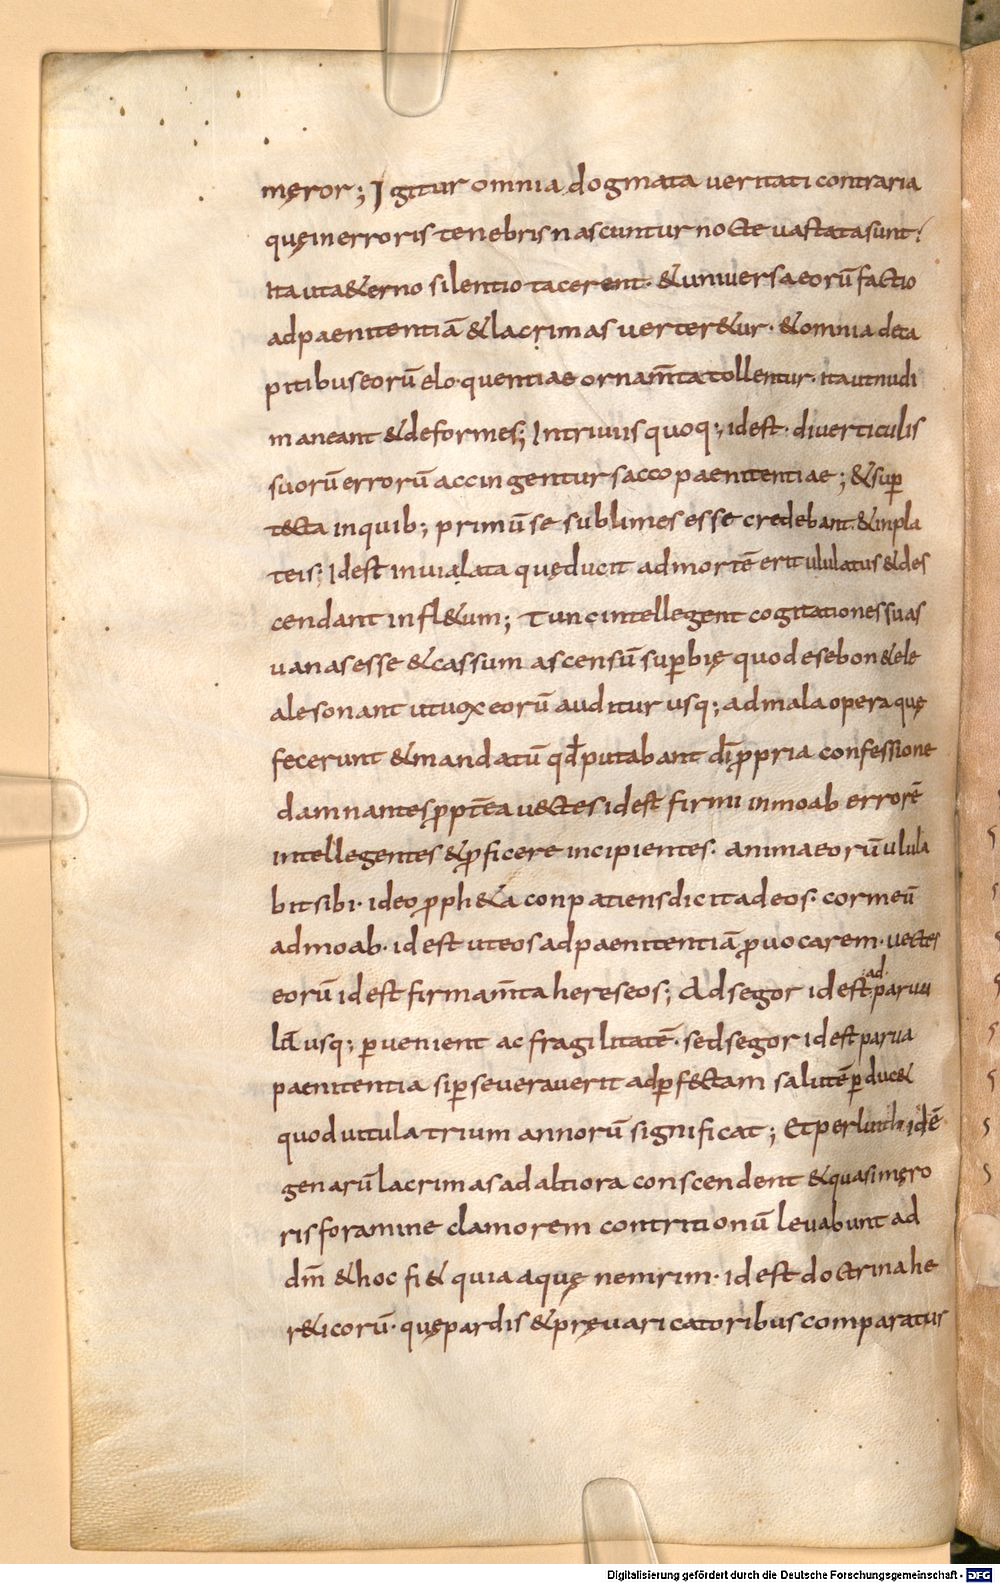 męror; Igitur omnia dogmata veritati contraria
quę in erroris tenebris nascuntur nocte vastata sunt;
ita ut a&erno silentio tacerent· & universa eorū factio
ad paenitentiā & lacrimas verter&ur· & omnia de ca
pitibus eorū elo·quentiae ornam̄ta tollentur· ita ut nudi
maneant & deformes; In triviis quoq; idest· diverticulis
suorū errorū accingentur sacco paenitentiae; & sup̄
t&cta inquib; primū se sublimes esse credebant & in pla
teis; Idest in via lata quę ducit ad mortē erit ululatus & des
cendant in fl&um; Tunc intellegent cogitationes suas
vanas esse & cassum ascensū sup̄bię quod esebon & ele
ale sonant ut vox eorū auditur usq; ad mala opera quę
fecerunt & mandatū qd̄ putabant dī p̄pria confessione
damnantes p̄pt̄ea vectes idest firmi in moab errorē
intellegentes & p̄ficere incipientes· anima eorū ulula
bit sibi· ideo p̄ph&a conpatiens dicit ad eos· cor meū
ad moab· idest ut eos ad paenitentiā p̄vocarem· vectes
eorū idest firmam̄ta hereseos; Ad segor idest ad parvu
lā usq; p̄venient ac fragilitatē· sed segor idest parva
paenitentia si p̄severaverit ad p̄f&ctam salutē p̄duc&
quod vitula trium annorū significat; Et per luith· idē
genarū lacrimas ad altiora conscendent & quasi męro
ris foramine clamorem contritionū levabunt ad
dm̄ & hoc fi& quia aquę nemrim· idest doctrina he
r&icorū· quę pardis & pręvaricatoribus comparatus
Digitalisierung gefördert durch die Deutsche Forschungsgemeinschaft - DFG